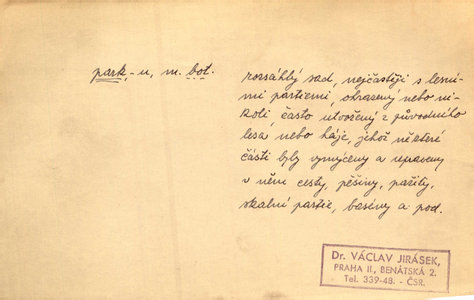 park -u, m. bot.
rozsáhlý sad, nejčastěji s lesní-
mi partiemi, ohrazený nebo ni-
koli, často utvořený z původního
lesa nebo háje, jehož některé
části byly vymýceny a upraveny
v něm cesty, pěšiny, pažity,
skalní partie, basény a pod.
Dr. VÁCLAV JIRÁSEK,
PRAHA II, BENÁTSKÁ 2.
Tel. 339-48. - ČSR.